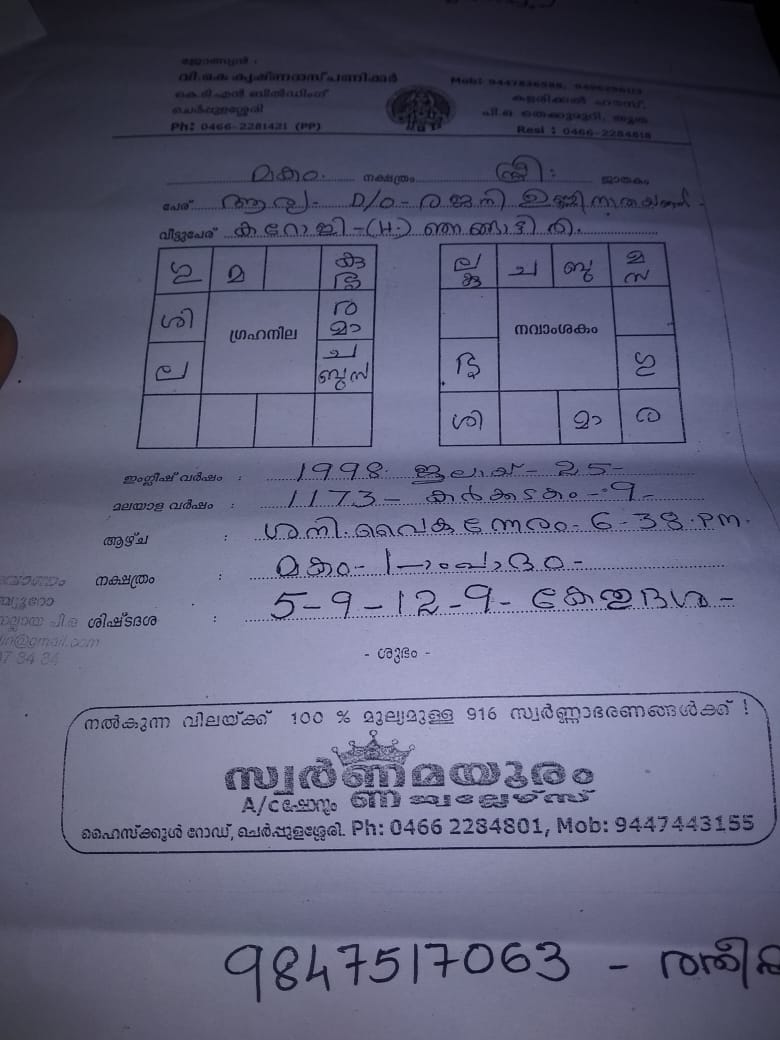 ജ്യോത്സ്യൻ :
വി.കെ കൃഷ്ണദാസ് പണിക്കർ
കെ.ടി.എൻ ബിൽഡിംഗ്
ചെർപ്പുളശ്ശേരി
Ph: 0466-2281421 (PP)
Mob:
കളരിക്കൽ ഹൗസ്,
പി.ഒ
Resi : 0466-2284818
മകം. നക്ഷത്രം സ്ത്രീ: ജാതകം
പേര് ആര്യ- D/O-
വീട്ടുപേര് -(H.)
ഗു മ കു
ശി ര മാ
ഗ്രഹനില
ല ച ബു സ
ല കു ച ബു മ സ
നവാംശകം
ഗു
ശി മാ ര
ഇംഗ്ലീഷ് വർഷം : 1998 ജൂലായ്- 25-
മലയാള വർഷം : 1173- കർക്കടകം- 9-
ആഴ്ച : ശനി. വൈകുന്നേരം- 6-38.PM.
നക്ഷത്രം : മകം- 1-ാംപാദം-
ശിഷ്ടദശ : 5-9-12-9- കേതുദശ-
- ശുഭം -
നൽകുന്ന വിലയ്ക്ക് 100 % മൂല്യമുള്ള 916 സ്വർണ്ണാഭരണങ്ങൾക്ക് !
സ്വർണ്ണമയൂരം
A/c ഷോറൂം
ഹൈസ്ക്കൂൾ റോഡ്, ചെർപ്പുളശ്ശേരി. Ph: 0466 2284801, Mob: 9447443155
9847517063 -